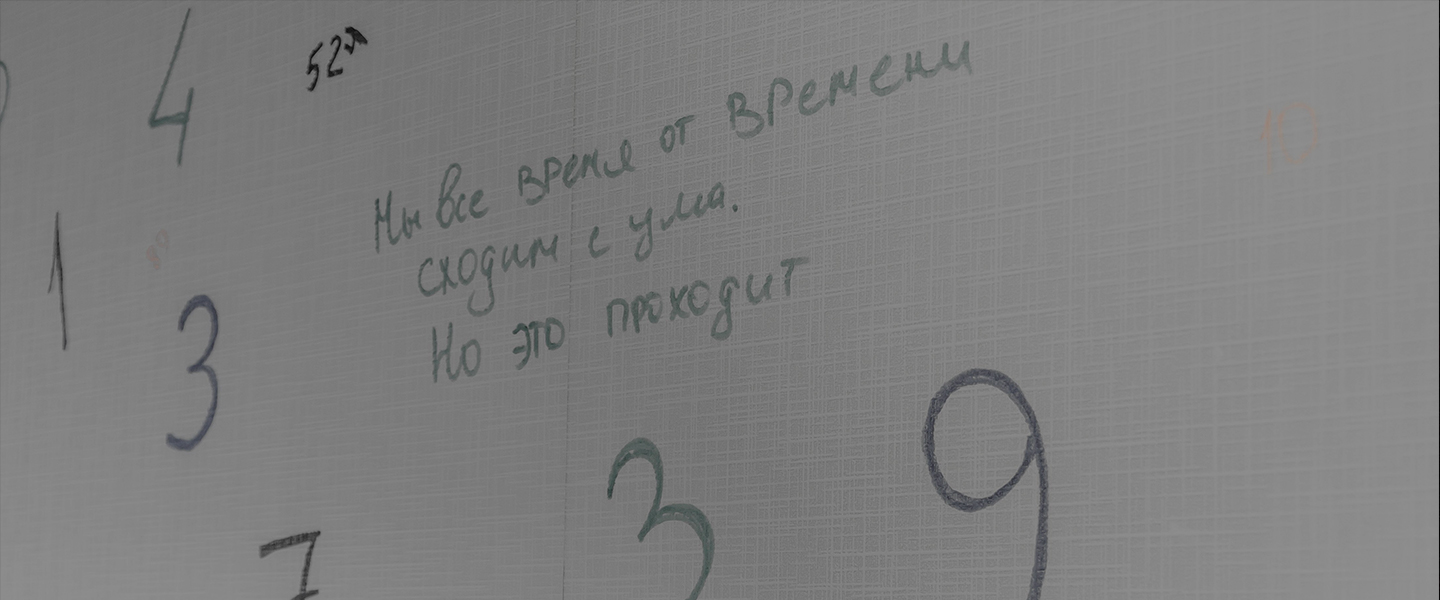 4
52
Мы все время от времени
сходим с ума.
Но это проходит
1
3
10
9
3
7